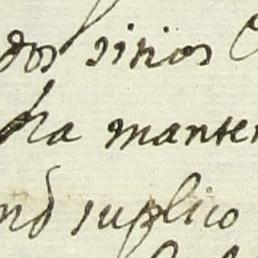 dos sitios
ha manten
nd suplico